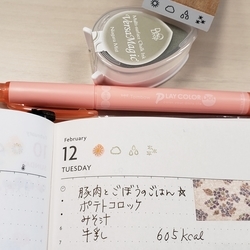 VersaMagic
PLAYCOLOR
February
12
TUESDAY
豚肉とごぼうのごはん☆
ポテトコロッケ
みそ汁
牛乳 605kcal